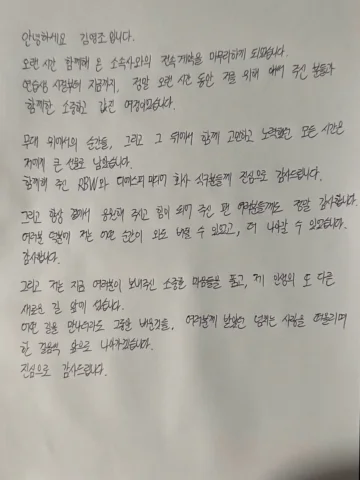 안녕하세요 김영조 입니다.
오랜 시간 함께해 온 소속사와의 전속계약을 마무리하게 되었습니다.
연습생 시절부터 지금까지, 정말 오랜 시간 동안 저를 위해 애써 주신 분들과
함께한 소중하고 값진 여정이었습니다.
무대 위에서의 순간들, 그리고 그 뒤에서 함께 고민하고 노력했던 모든 시간은
저에게 큰 선물로 남았습니다.
함께해 주신 RBW와 디메스피미디어 회사 식구분들께 진심으로 감사드립니다.
그리고 항상 곁에서 응원해 주시고 힘이 되어 주신 팬 여러분들께도 정말 감사합니다.
여러분 덕분에 저는 어떤 순간이 와도 버틸 수 있었고, 더 나아갈 수 있었습니다.
감사합니다.
그리고 저는 지금 여러분이 보내주신 소중한 마음들을 품고, 제 인생의 또 다른
새로운 길 앞에 섰습니다.
어떤 길을 만나더라도 그동안 배운것들, 여러분께 받았던 넘치는 사랑을 떠올리며
한 걸음씩 앞으로 나아가겠습니다.
진심으로 감사드립니다.